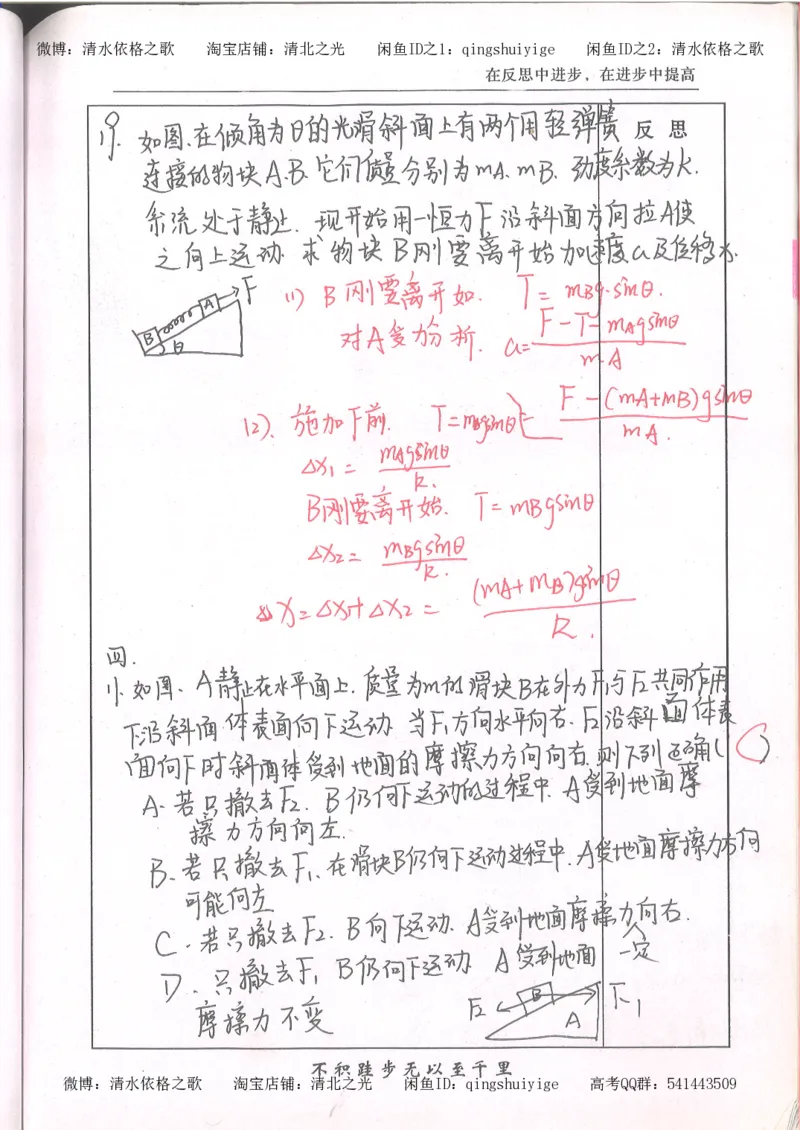 微博：清水依格之歌 淘宝店铺：清北之光 闲鱼ID之1：qingshuiyige 闲鱼ID之2：清水依格之歌
在反思中进步，在进步中提高
反 思
19. 如图、在倾角为θ的光滑斜面上有两个用轻弹簧
连接的物块A.B. 它们质量分别为mA. mB. 劲度系数为k.
系流处于静止. 现开始用一恒力F沿斜面方向拉A使
之向上运动. 求物块B刚要离开始加速度a及位移x.
B A F θ
(1) B刚要离开始. T = mBg·sinθ.
对A受力分析. a= F-T-mAgsinθ / mA
= F-(mA+mB)gsinθ / mA.
(2). 施加F前. T=mAgsinθ
Δx1 = mAgsinθ / k.
B刚要离开始. T=mBgsinθ
Δx2 = mBgsinθ / k.
x=Δx1+Δx2 = (mA+mB)gsinθ / k.
四.
1. 如图、A静止在水平面上. 质量为m的滑块B在外力F1与F2共同作用
下沿斜面体表面向下运动. 当F1方向水平向右. F2沿斜面体表
面向下时斜面体受到地面的摩擦力方向向右. 则下列正确( C )
A. 若只撤去F2. B仍向下运动的过程中. A受到地面摩
擦力方向向左.
B. 若只撤去F1. 在滑块B仍向下运动过程中. A受地面摩擦力方向
可能向左
C. 若只撤去F2. B向下运动. A受到地面摩擦力向右.
D. 只撤去F1 B仍向下运动 A受到地面 一定
摩擦力不变
F2 B F1 A
不积跬步无以至千里
微博：清水依格之歌 淘宝店铺：清北之光 闲鱼ID：qingshuiyige 高考QQ群：541443509